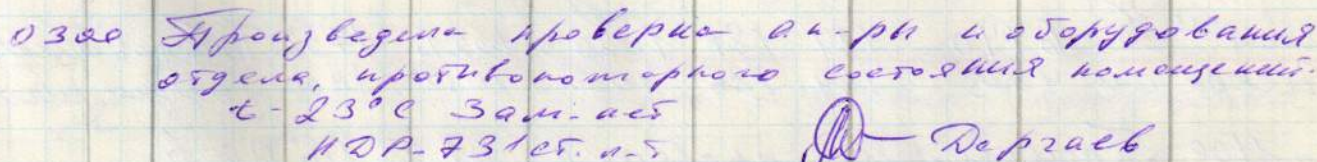 0300 Произведена проверка ап-ры и оборудования
отдела, противопожарного состояния помещений.
t - 23°C Зам. нет
НДР-731 ст. л-т Дергаев